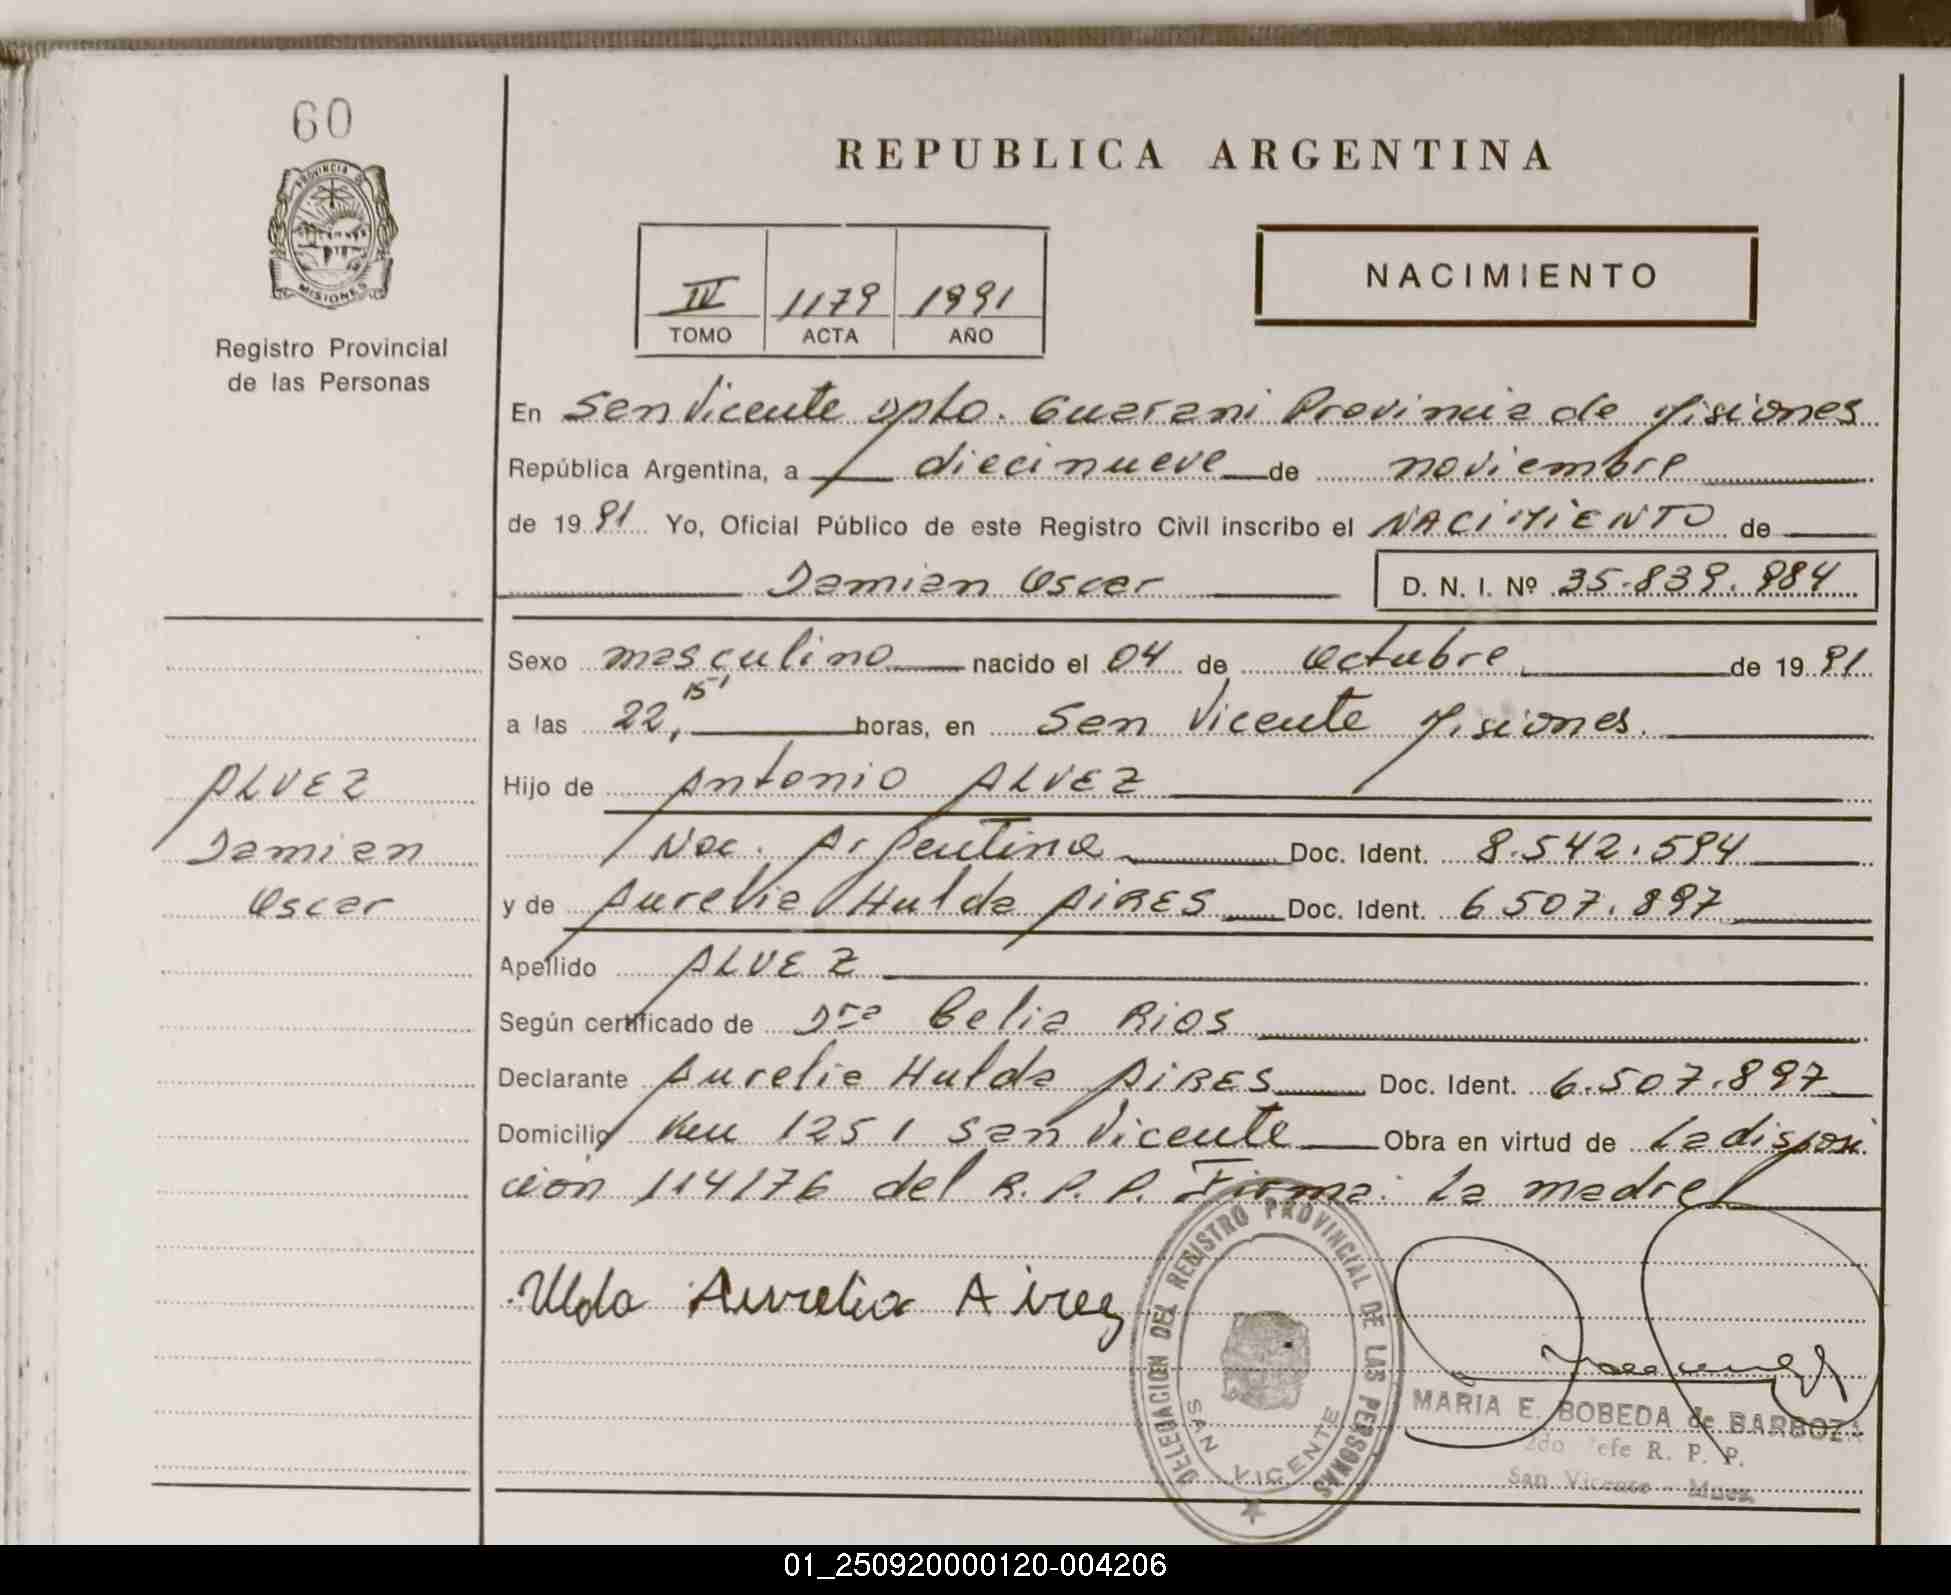 60
PROVINCIA DE
MISIONES
Registro Provincial
de las Personas
REPUBLICA ARGENTINA
IV 1179 1991
TOMO ACTA AÑO
NACIMIENTO
En San Vicente Dpto. Guarani Provincia de Misiones
República Argentina, a diecinueve de noviembre
de 1991 Yo, Oficial Público de este Registro Civil inscribo el NACIMIENTO de
Damian Oscar D. N. I. Nº 35.839.984
Sexo masculino nacido el 04 de Octubre de 1991
a las 22,15' horas, en San Vicente Misiones.
Hijo de Antonio ALVEZ
Nac. Argentina Doc. Ident. 8.542.594
y de Aurelia Hulda PIRES Doc. Ident. 6507.897
Apellido ALVEZ
Según certificado de Dra Celia Rios
Declarante Aurelia Hulda PIRES Doc. Ident. 6.507.897
Domicilio Km 1251 San Vicente Obra en virtud de La disposi
cion 114176 del R.P.P. Firma: La madre
ALVEZ
Damian
Oscar
Ulda Aurelia Airez
DELEGACION DEL REGISTRO PROVINCIAL DE LAS PERSONAS
SAN VICENTE
MARIA E. BOBEDA de BARBOZA
2do Jefe R. P. P.
San Vicente - Mnes.
01_250920000120-004206